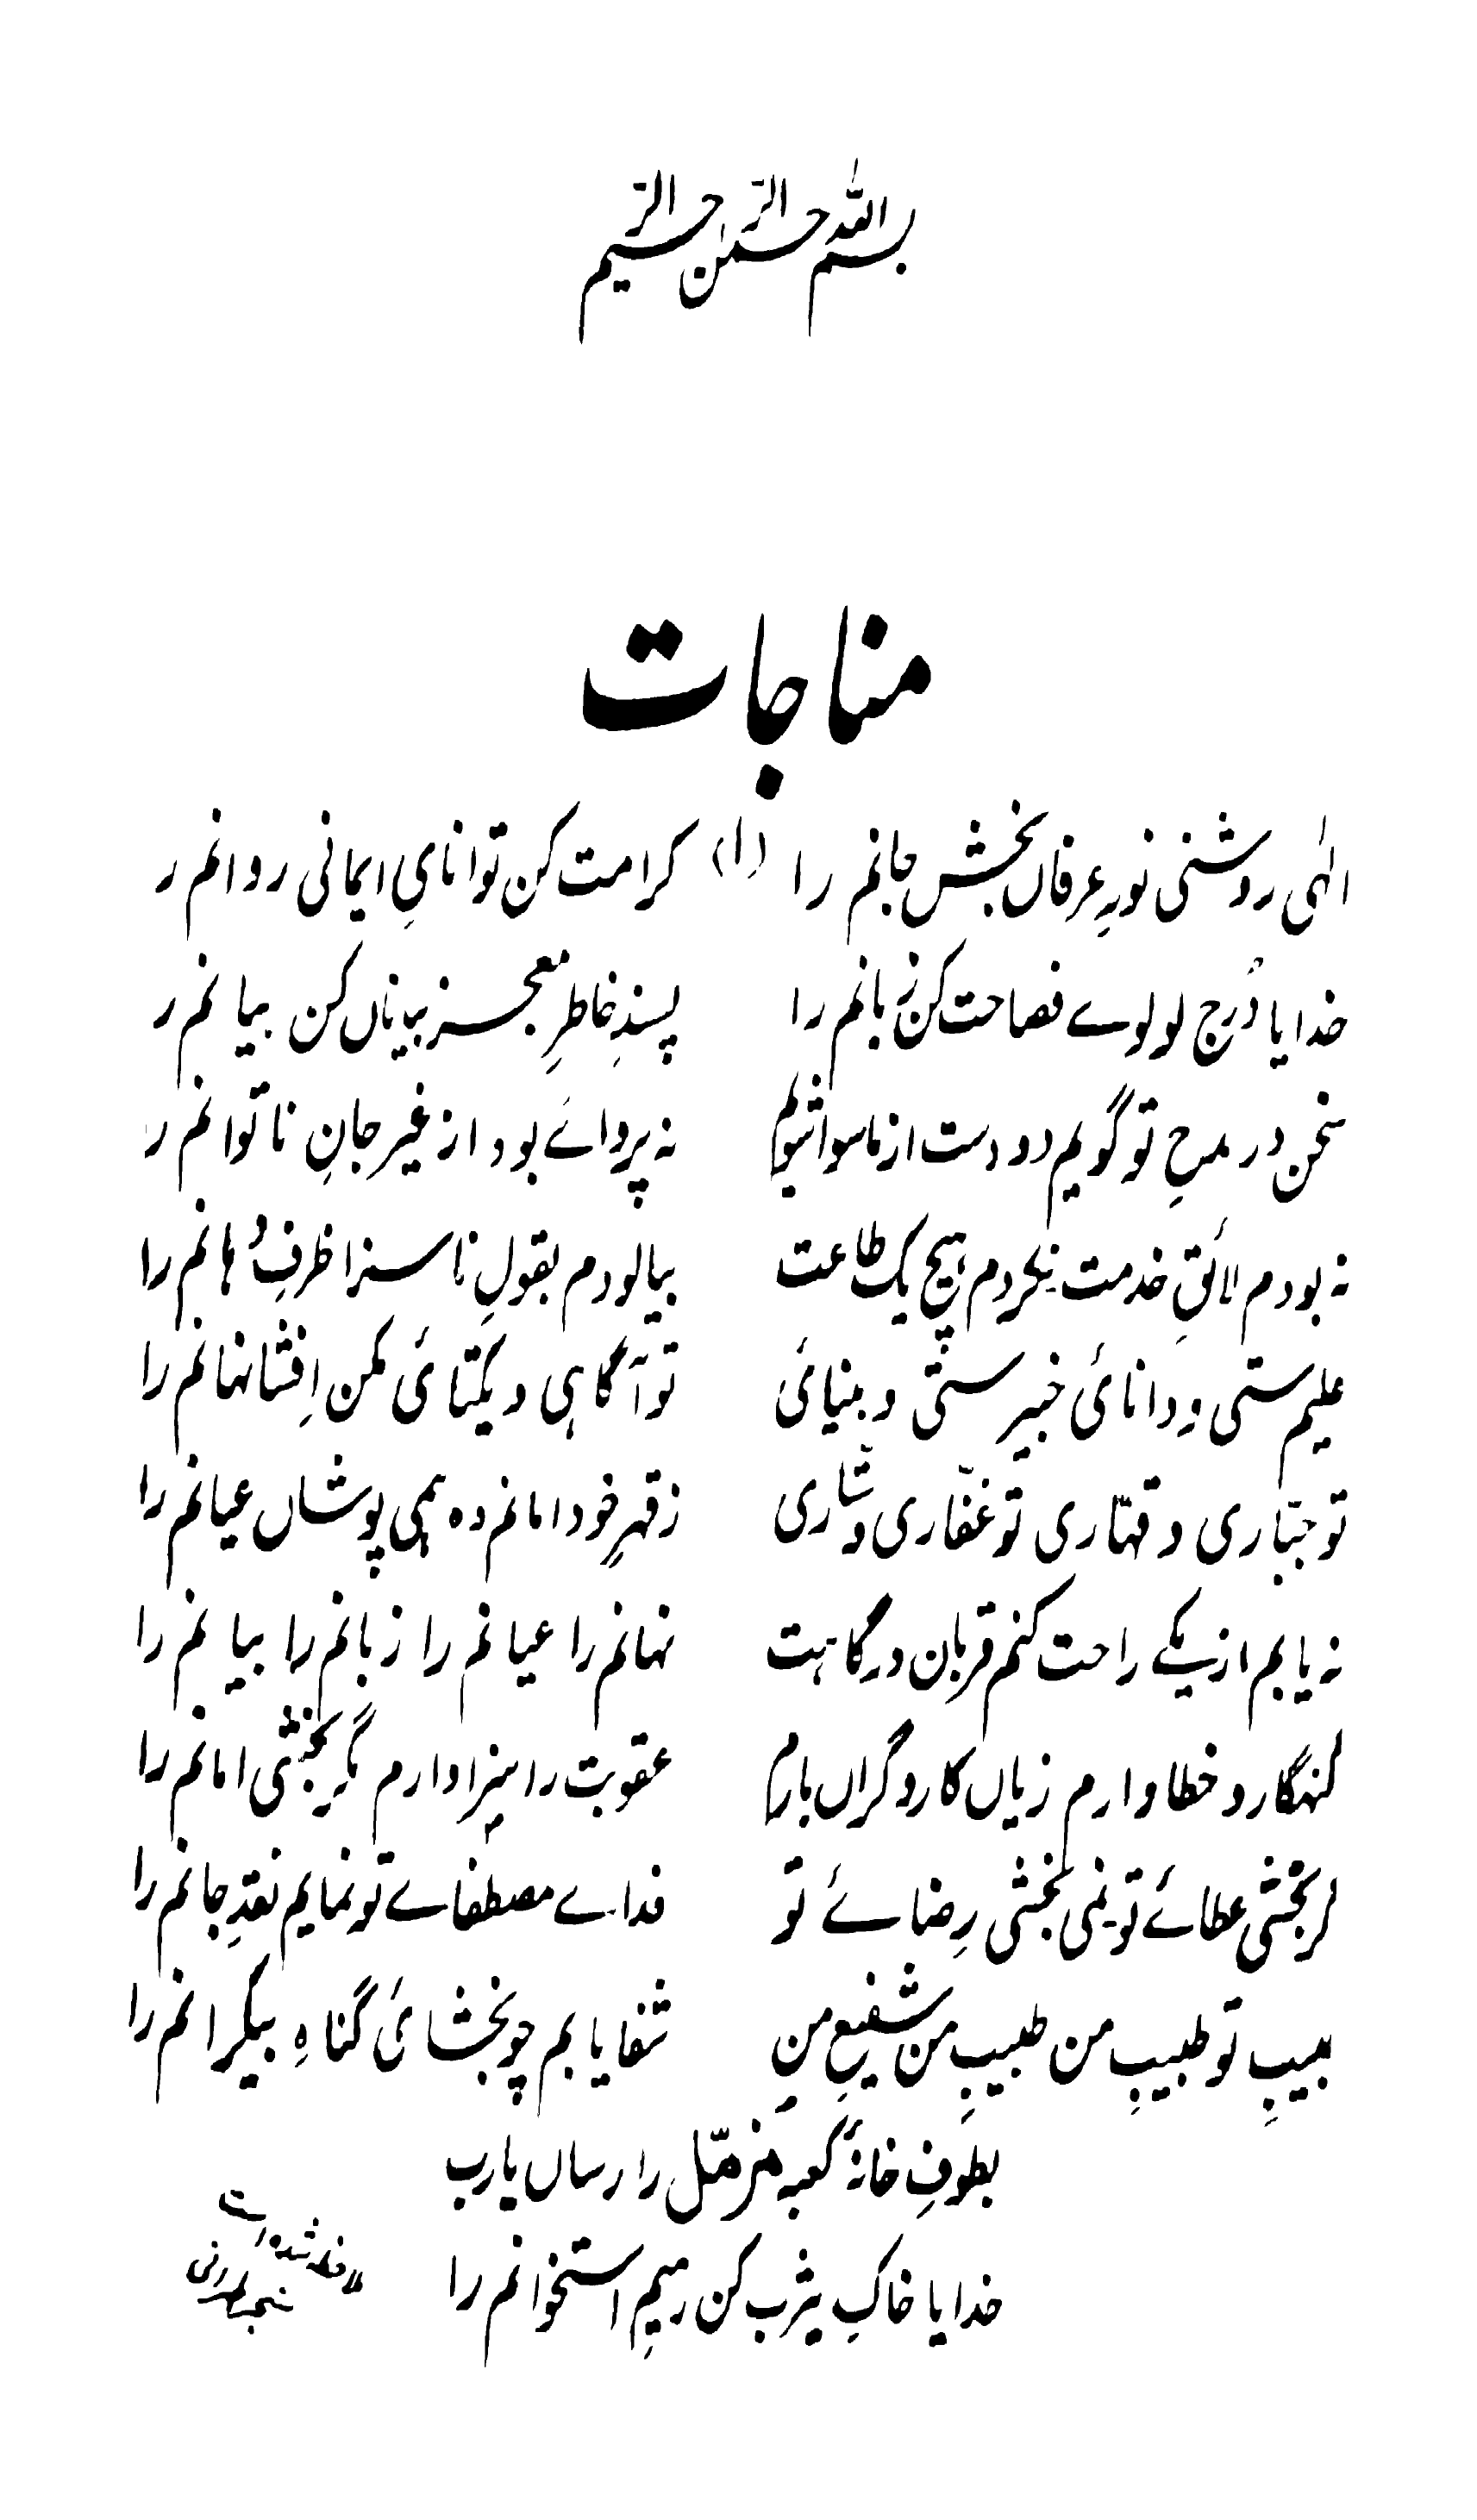 بسم الله الرحمن الرحيم
مناجات
الٰہی روشنی نورِ عرفاں بخش جانم را (۱) کرامت کن توانایِ ایمانی روانم ر
خدایا دُرجِ لولوے فصاحت کن زبانم را پسندِ خاطرِ معجز بیناں کن بیانم ر
سخن در مدحِ تو گویم دو دست از ماسوا شویم نہ پرواےَ بود از غیر جانِ ناتوانم ر
نہ بودم لائقِ خدمت نکردم ہیچ یک طاعت بیالودم بقولِ ناسزا ظرفِ دُہانم را
علیم ستی و دانائی خبیرستی و بینائی تو آگاہی و یکتائی مکن اِفشا نہانم را
تو جبّاری و قہّاری تو غفّاری و ستّاری ز قہرِ خود امانم دہ ہمی پوشاں عیانم را
نہ یابم از یکے راحت کنم قربان درگاہت نہانم را عیانم را زبانم را بیانم را
گنہگار و خطا وارم زیاں کار و گراں بارم عقوبت را سزا دارم گر نہ بخشی امانم را
گر بخشی عطائے تو نمی بخشی رِضائے تو فداے مصطفاے تو نمایم نقدِ جانم را
حبیبِ تو طبیبِ من طبیبِ من شفیعِ من شفا یابم چو بخشائی گناہِ بیکرانم را
بطوفِ خانۂ کعبہ مزمّل را رساں یارب
خدایا خاکِ یثرب کن رمیمِ استخوانم را